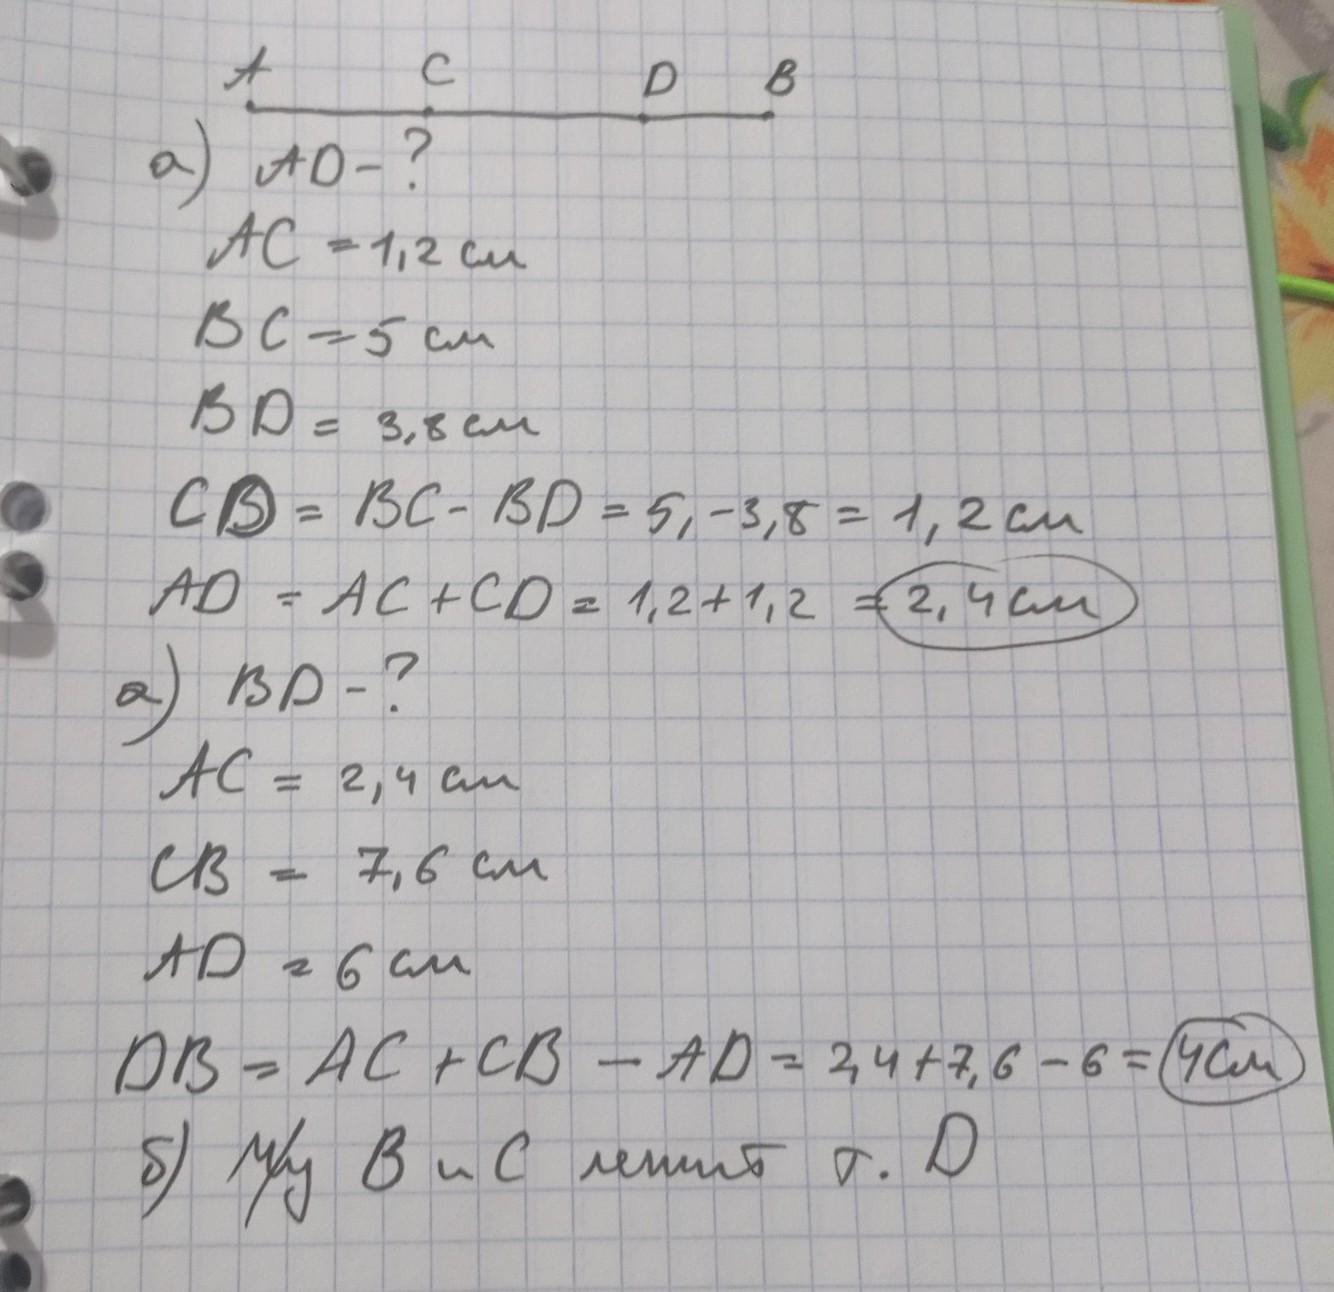 A C D B
а) AD - ?
AC = 1,2 см
BC = 5 см
BD = 3,8 см
CD = BC - BD = 5, - 3,8 = 1,2 см
AD = AC + CD = 1,2 + 1,2 = 2,4 см
а) BD - ?
AC = 2,4 см
CB = 7,6 см
AD = 6 см
DB = AC + CB - AD = 2,4 + 7,6 - 6 = 4 см
б) м/у B и C лежит т. D